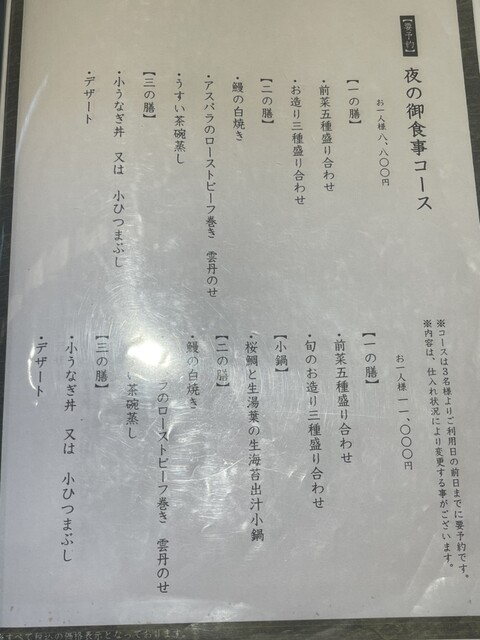 【要予約】
夜の御食事コース
お一人様 八、八〇〇円
【一の膳】
・前菜五種盛り合わせ
・お造り三種盛り合わせ
【二の膳】
・鰻の白焼き
・アスパラのローストビーフ巻き 雲丹のせ
・うすい茶碗蒸し
【三の膳】
・小うなぎ丼 又は 小ひつまぶし
・デザート
※コースは3名様よりご利用日の前日までに要予約です。
※内容は、仕入れ状況により変更する事がございます。
お一人様 一一、〇〇〇円
【一の膳】
・前菜五種盛り合わせ
・旬のお造り三種盛り合わせ
【小鍋】
・桜鯛と生湯葉の生海苔出汁小鍋
【二の膳】
・鰻の白焼き
ラのローストビーフ巻き 雲丹のせ
い茶碗蒸し
【三の膳】
・小うなぎ丼 又は 小ひつまぶし
・デザート
すべて税込の価格表示となっております。